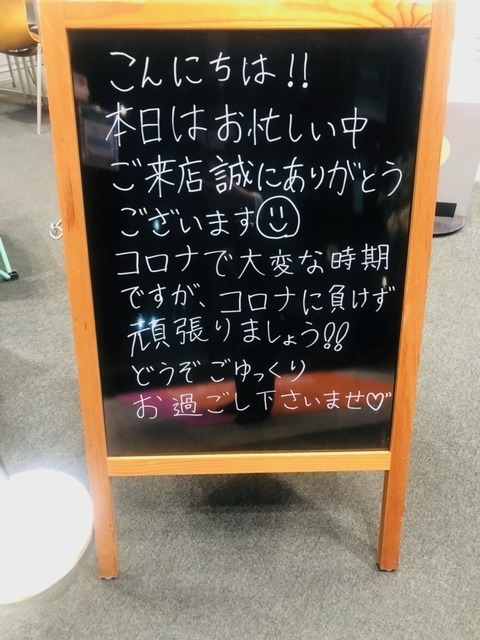 こんにちは!!
本日はお忙しい中
ご来店誠にありがとう
ございます☺
コロナで大変な時期
ですが、コロナに負けず
頑張りましょう!!
どうぞごゆっくり
お過ごし下さいませ♡"